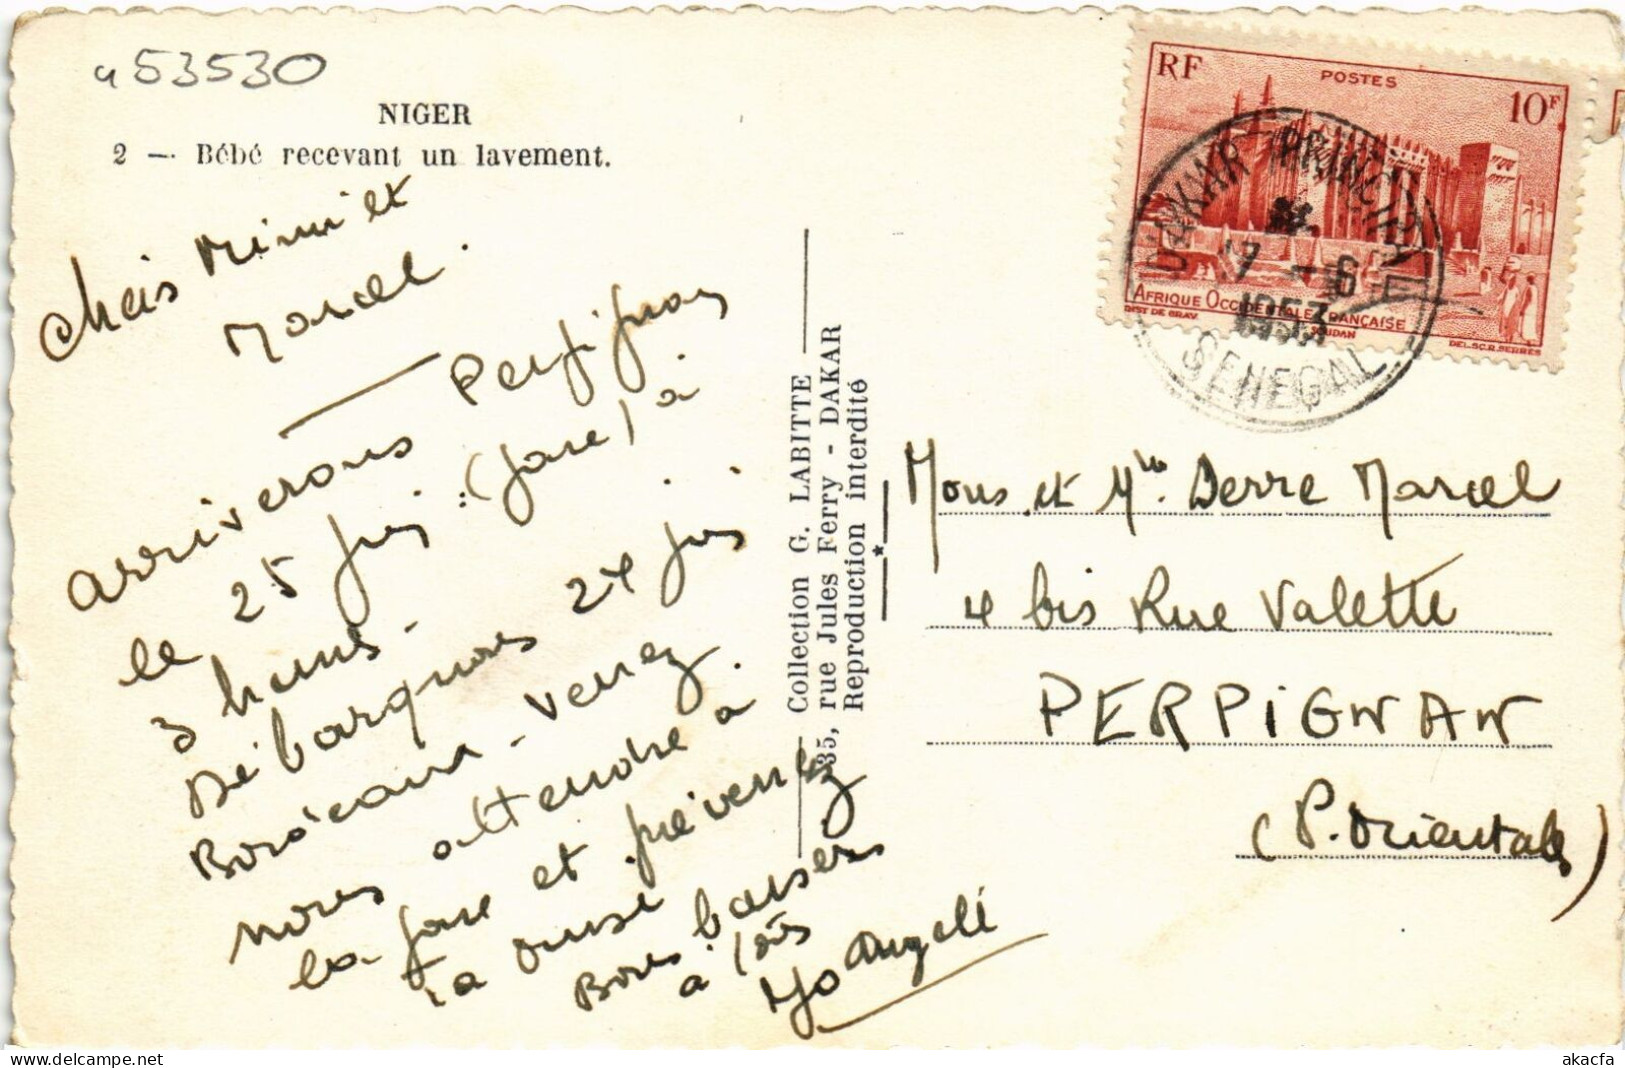 a53530
NIGER
2 — Bébé recevant un lavement.
Chers Mimi et
Marcel.
— Perpignan
arriverons
le 25 juin (gare) à
3 heures.
Débarquons 24 juin
Bordeaux - Venez
nous attendre à
la gare et prévenez
la
Bons baisers
à tous
Yo Angelé
Collection G. LABITTE
35, rue Jules Ferry - DAKAR
Reproduction interdite
RF
POSTES
10F
AFRIQUE OCCIDENTALE FRANÇAISE
INST DE GRAV.
SOUDAN
DEL. SC. R. SERRES
DAKAR PRINCIPAL
17 - 6
1953
SENEGAL
Mons et Me Derre Marcel
4 bis Rue Valette
PERPIGNAN
(P. Orientales)
akacfa